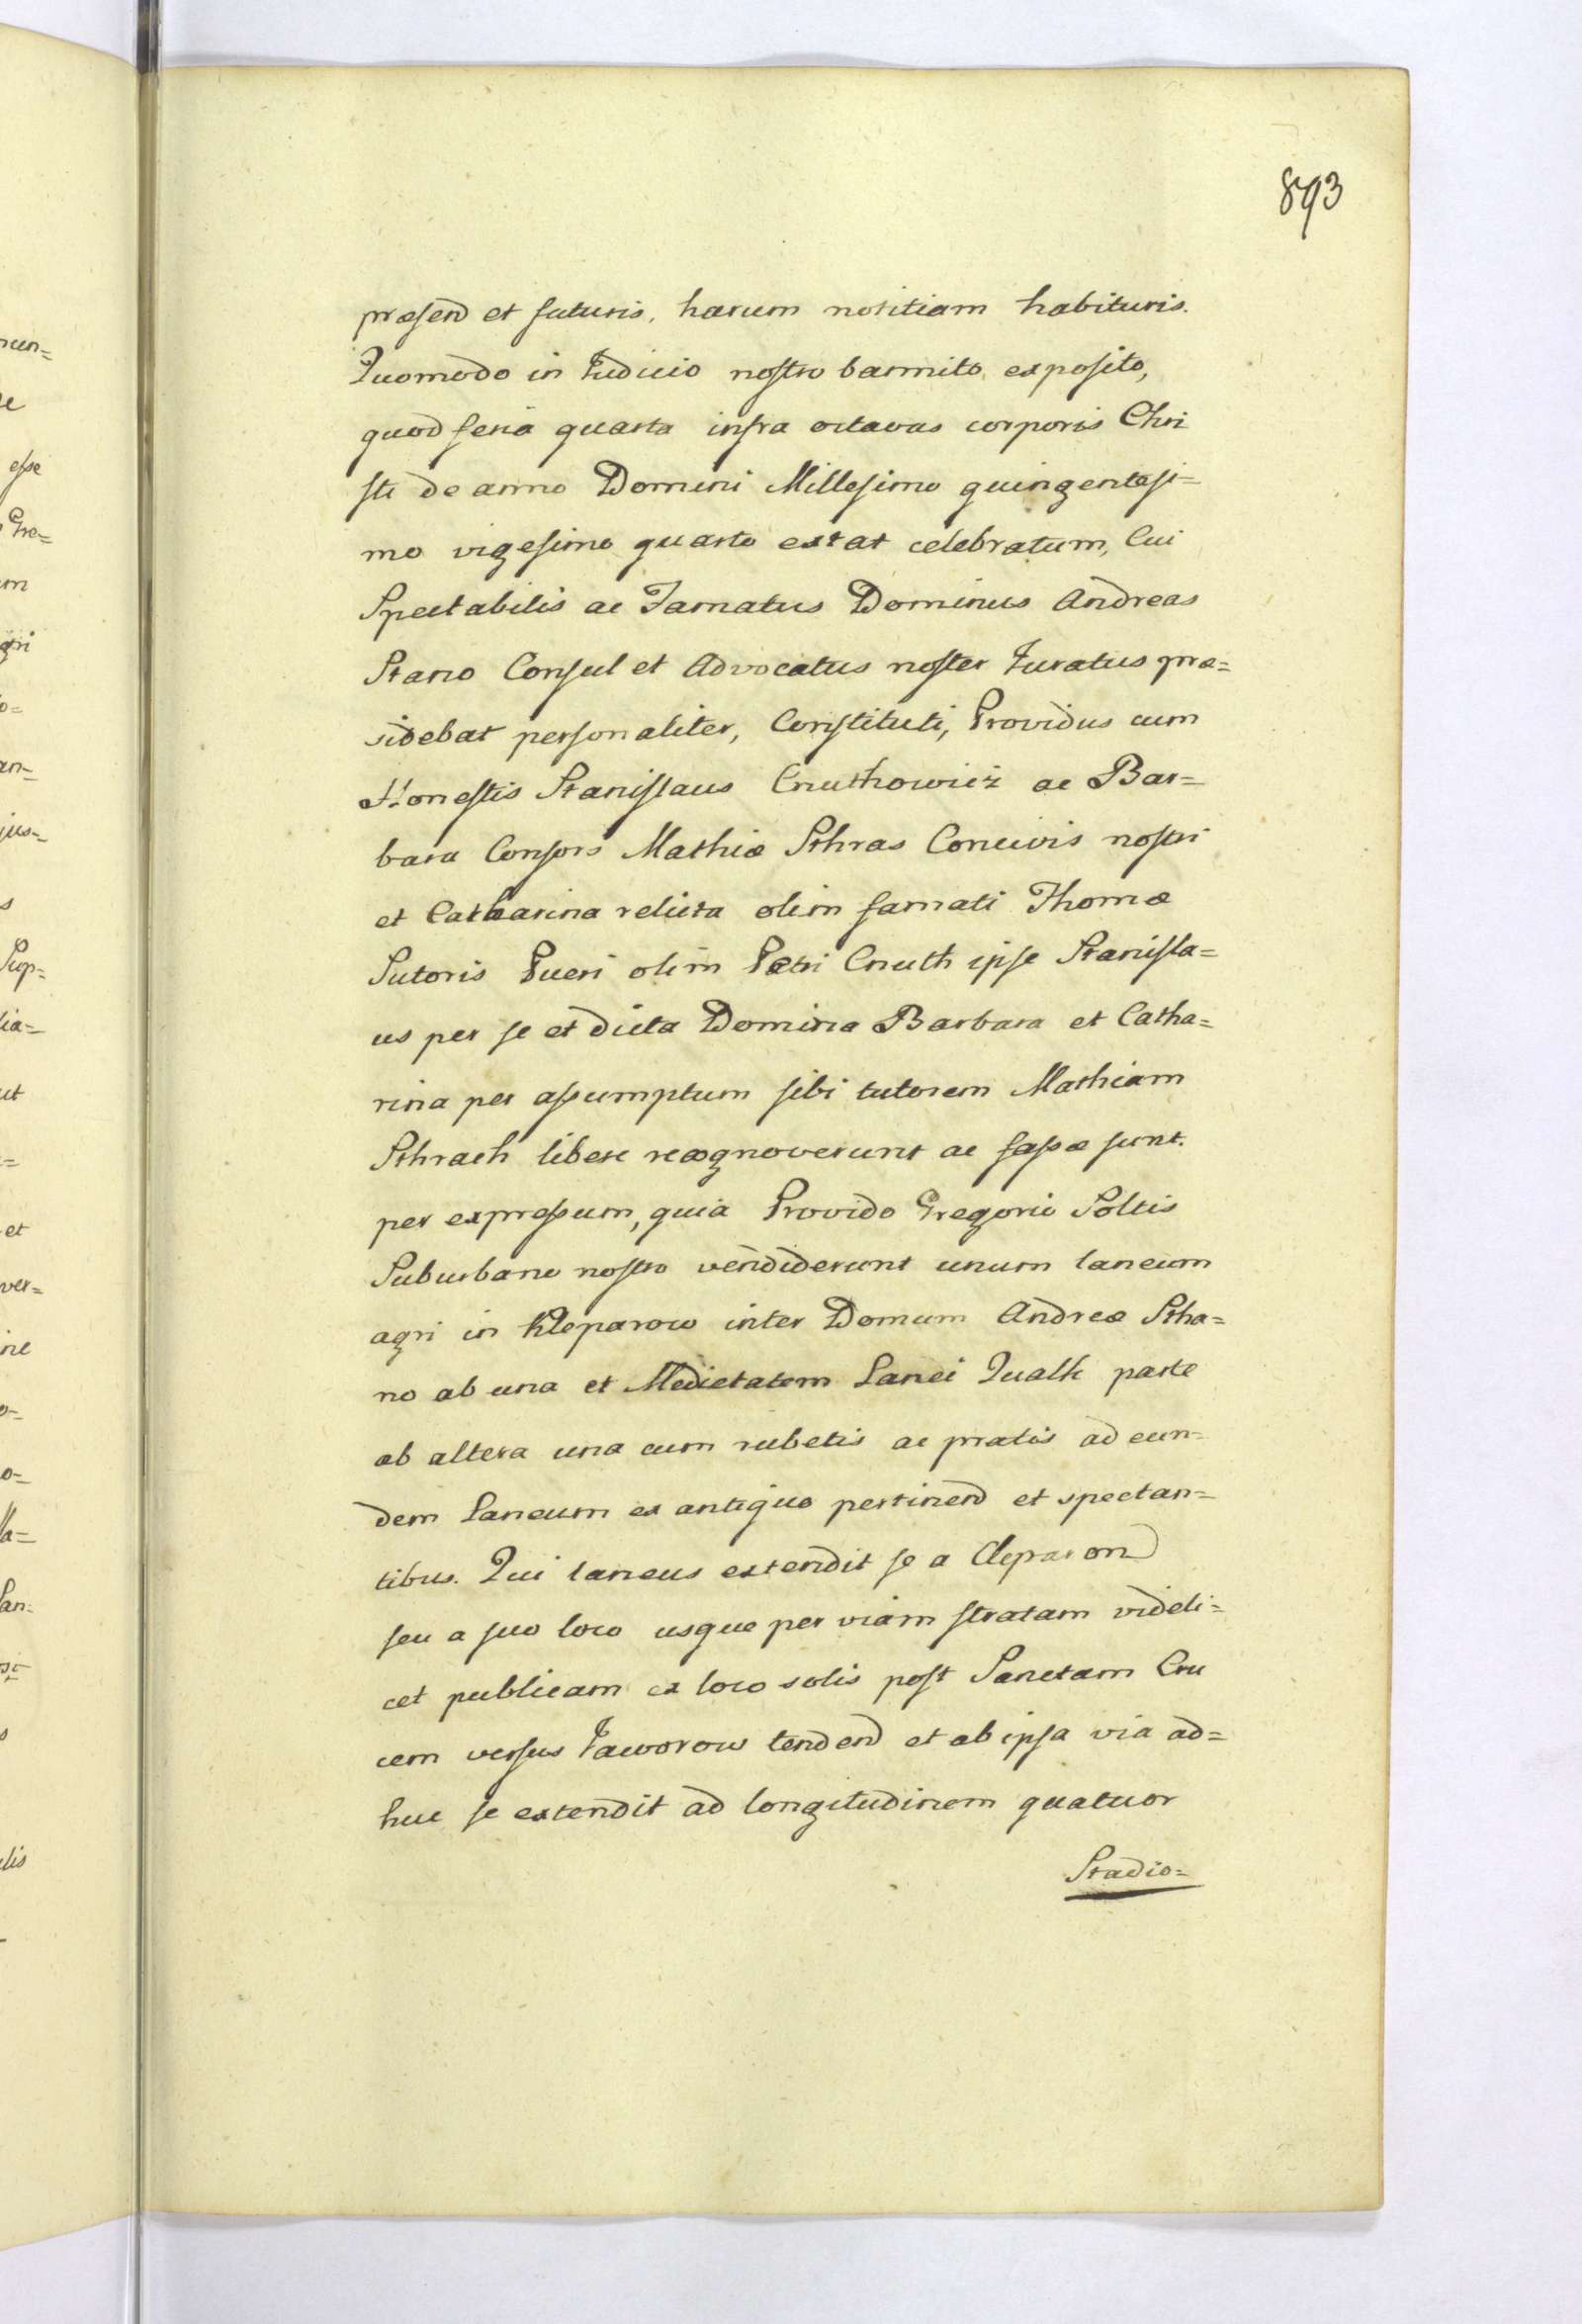 893
præsend et futuris, harum notitiam habituris.
Quomodo in Judicio nostro bannito exposito,
quod feria quarta infra octavas corporis Chri
sti de anno Domini Millesimo quingentesi=
mo vigesimo quarto extat celebratum, Cui
Spectabilis ac Famatus Dominus Andreas
Stano Consul et Advocatus noster Juratus præ=
sidebat personaliter, Constituti, Providus cum
Honestis Stanislaus Cnuthowicz ac Bar=
bara Consors Mathiæ Sthras Concivis nostri
et Catharina relicta olim famati Thomæ
Sutoris Pueri olim Petri Cnuth ipse Stanisla=
us per se et dicta Domina Barbara et Catha=
rina per assumptum sibi tutorem Mathiam
Sthrach libere recognoverunt ac fassæ sunt.
per expressum, quia Provido Gregorio Soltis
Suburbano nostro vendiderunt unum laneum
agri in Kleparow inter Domum Andreæ Stha=
no ab una et Medietatem Lanei Qualk parte
ab altera una cum rubetis ac pratis ad eun=
dem Laneum ex antiquo pertinend et spectan=
tibus. Qui laneus extendit se a Cleparon
seu a suo loco usque per viam stratam videli=
cet publicam ex loco solis post Sanctam Cru
cem versus Jaworow tendend et ab ipsa via ad=
huc se extendit ad longitudinem quatuor
Stadio=
nun=
esse
Gre=
um
gri
o=
an=
jus=
s
Sup=
lia=
ut
et
ver=
ne
o=
la=
Lan=
lis